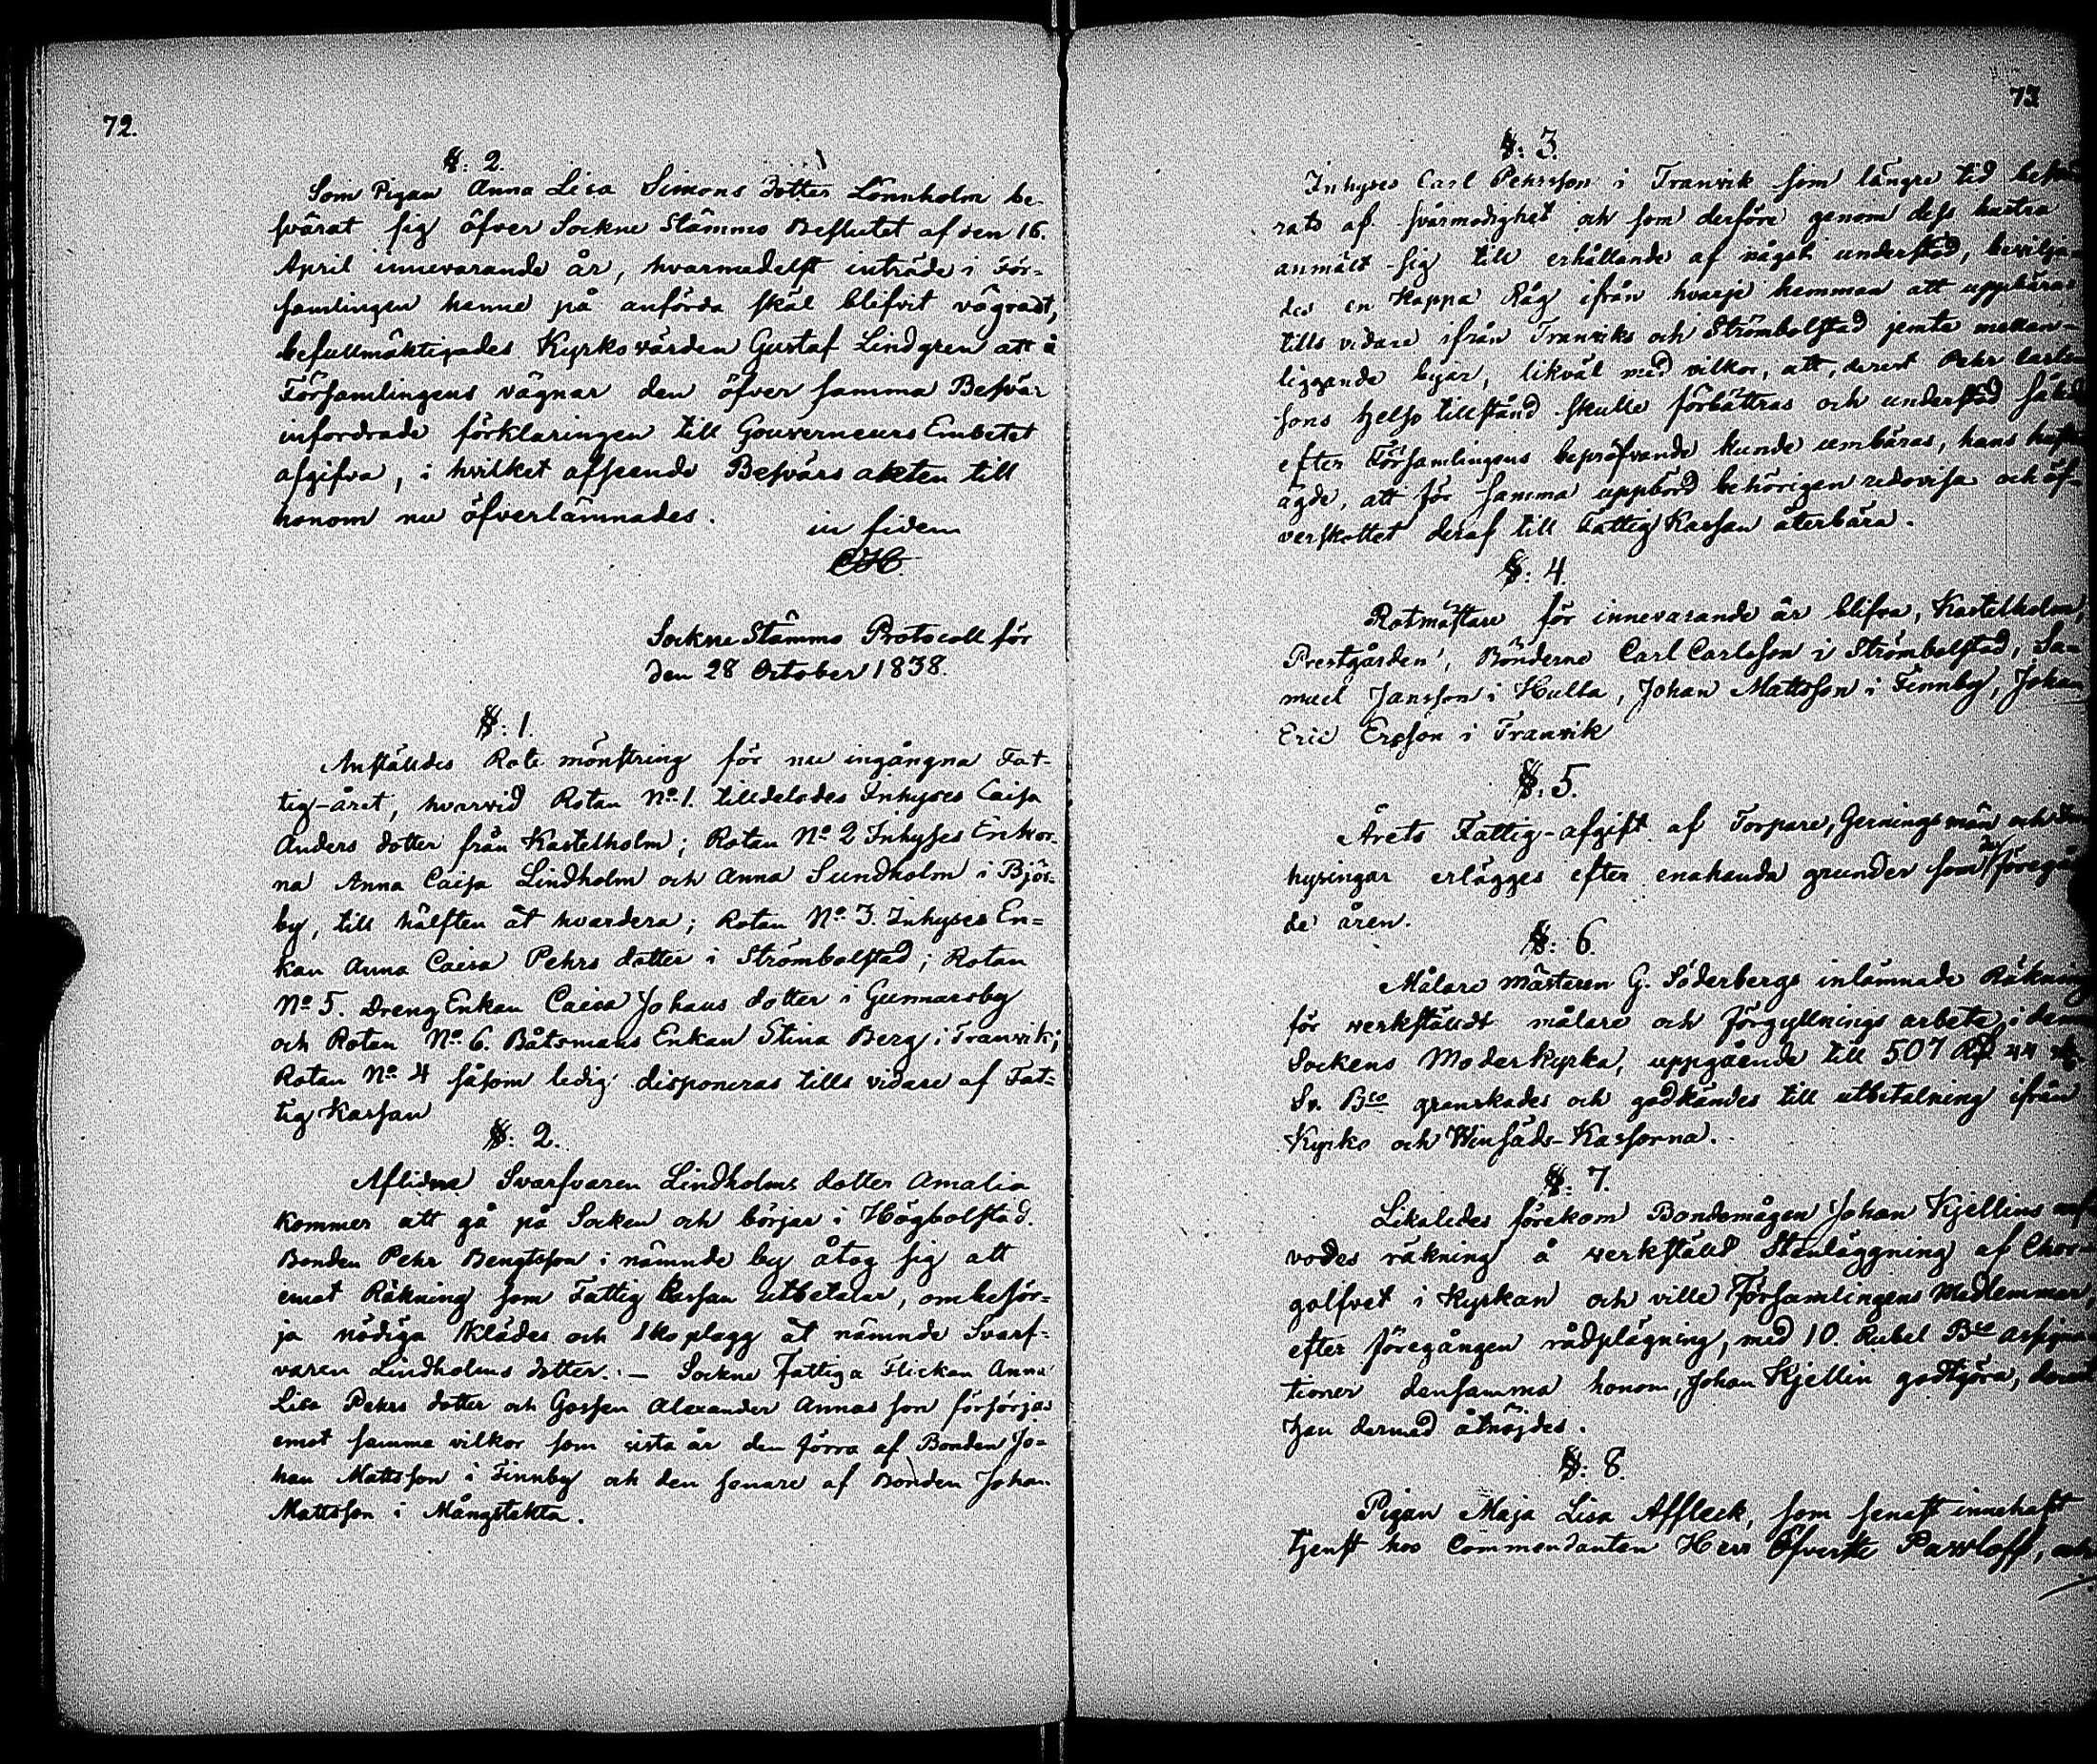 72.
§: 2.
Som Pigan Anna Lisa Simons dotter Lönnholm be-
svärat sig öfver Sockne Stämmo Beslutet af den 16.
April innevarande år, hvarmedelst inträde i För-
samlingen henne på anförda skäl blifvit vägradt,
befullmäktigades Kyrkovärden Gustaf Lindgren att å
Församlingens vägnar den öfver samma Besvär
infordrade förklaringen till Gouverneurs Embetet
afgifva, i hvilket afseende Besvärs akten till
honom nu öfverlämnades.
in fidem
Sockne Stämmo Protocoll för
den 28 October 1838.
§: 1.
Anställdes Rote mönstring för nu ingångna Fat-
tig-året, hvarvid Rotan No 1. tilldelades Inhyses Caisa
Anders dotter från Kastelholm; Rotan No 2 Inhyses Enkor-
na Anna Caisa Lindholm och Anna Sundholm i Björ-
by, till hälften åt hvardera; Rotan No 3. Inhyses En=
kan Anna Caisa Pehrs dotter i Strömbolstad; Rotan
No 5. Dreng Enkan Caisa Johans dotter i Gunnarsby
och Rotan No 6. Båtsmans Enkan Stina Berg i Tranvik;
Rotan No 4 såsom ledig disponeras tills vidare af Fat=
tig Kassan
§: 2.
Aflidne Svarfvaren Lindholms dotter Amalia
kommer att gå på Socken och börjar i Högbolstad.
Bonden Pehr Bengtsson i nämnde by åtog sig att
emot Räkning som Fattig Kassan utbetalar, ombesör=
ja nödiga Kläder och Skoplagg åt nämnde Svarf-
varen Lindholms dotter. — Sockne fattiga Flickan Anna
Lisa Pehrs dotter och Gossen Alexander Annas son försörjas
emot samma vilkor som sista år den förra af Bonden Jo=
han Mattsson i Finnby och den senare af Bonden Johan
Mattsson i Mångstekta.
73
§: 3.
Inhyses Carl Pehrsson i Tranvik som längre tid besvä
rats af svårmodighet och som derföre genom dess hustru
anmält sig till erhållande af något understöd, bevilja-
des en Kappa Råg ifrån hvarje hemman att uppbäras
tills vidare ifrån Tranviks och Strömbolstad jemte mellan-
liggande byar, likväl med vilkor, att, derest Pehr Carls-
sons helso tillstånd skulle förbättras och understöd
efter Församlingens bepröfvande kunde umbäras, hans
ägde, att för samma uppbörd behörigen redovisa och öf-
verskottet deraf till Fattig Kassan återbära.
§: 4.
Rotmästare för innevarande år blifva, Kastelholm,
Prestgården, Bönderne Carl Carlsson i Strömbolstad, Sa-
muel Jansson i Hulta, Johan Mattsson i Finnby, Johan
Eric Ersson i Tranvik
§: 5.
Årets Fattig-afgift af Torpare, Gerningsmän och In
hysingar erlägges efter enahanda grunder som de föregåen
de åren.
§: 6.
Målare mästaren G. Söderbergs inlämnade Räkning
för verkställdt målare och förgyllnings arbete i denna
Sockens Moderkyrka, uppgående till 507 Rd 44
Sv. Bco granskades och godkändes till utbetalning ifrån
Kyrko och Winsäds-Kassorna.
§: 7.
Likaledes förekom Bondemågen Johan Kjellins
vodes räkning å verkställd Stenläggning af Chor-
golfvet i Kyrkan och ville Församlingens Medlemmar,
efter föregången rådplägning, med 10. Rubel Bco assigna
tioner densamma honom, Johan Kjellin godtgöra,
han dermed åtnöjdes.
§: 8.
Pigan Maja Lisa Affleck, som senast innehaft
tjenst hos Commendanten Herr Öfverste Pawloff, och